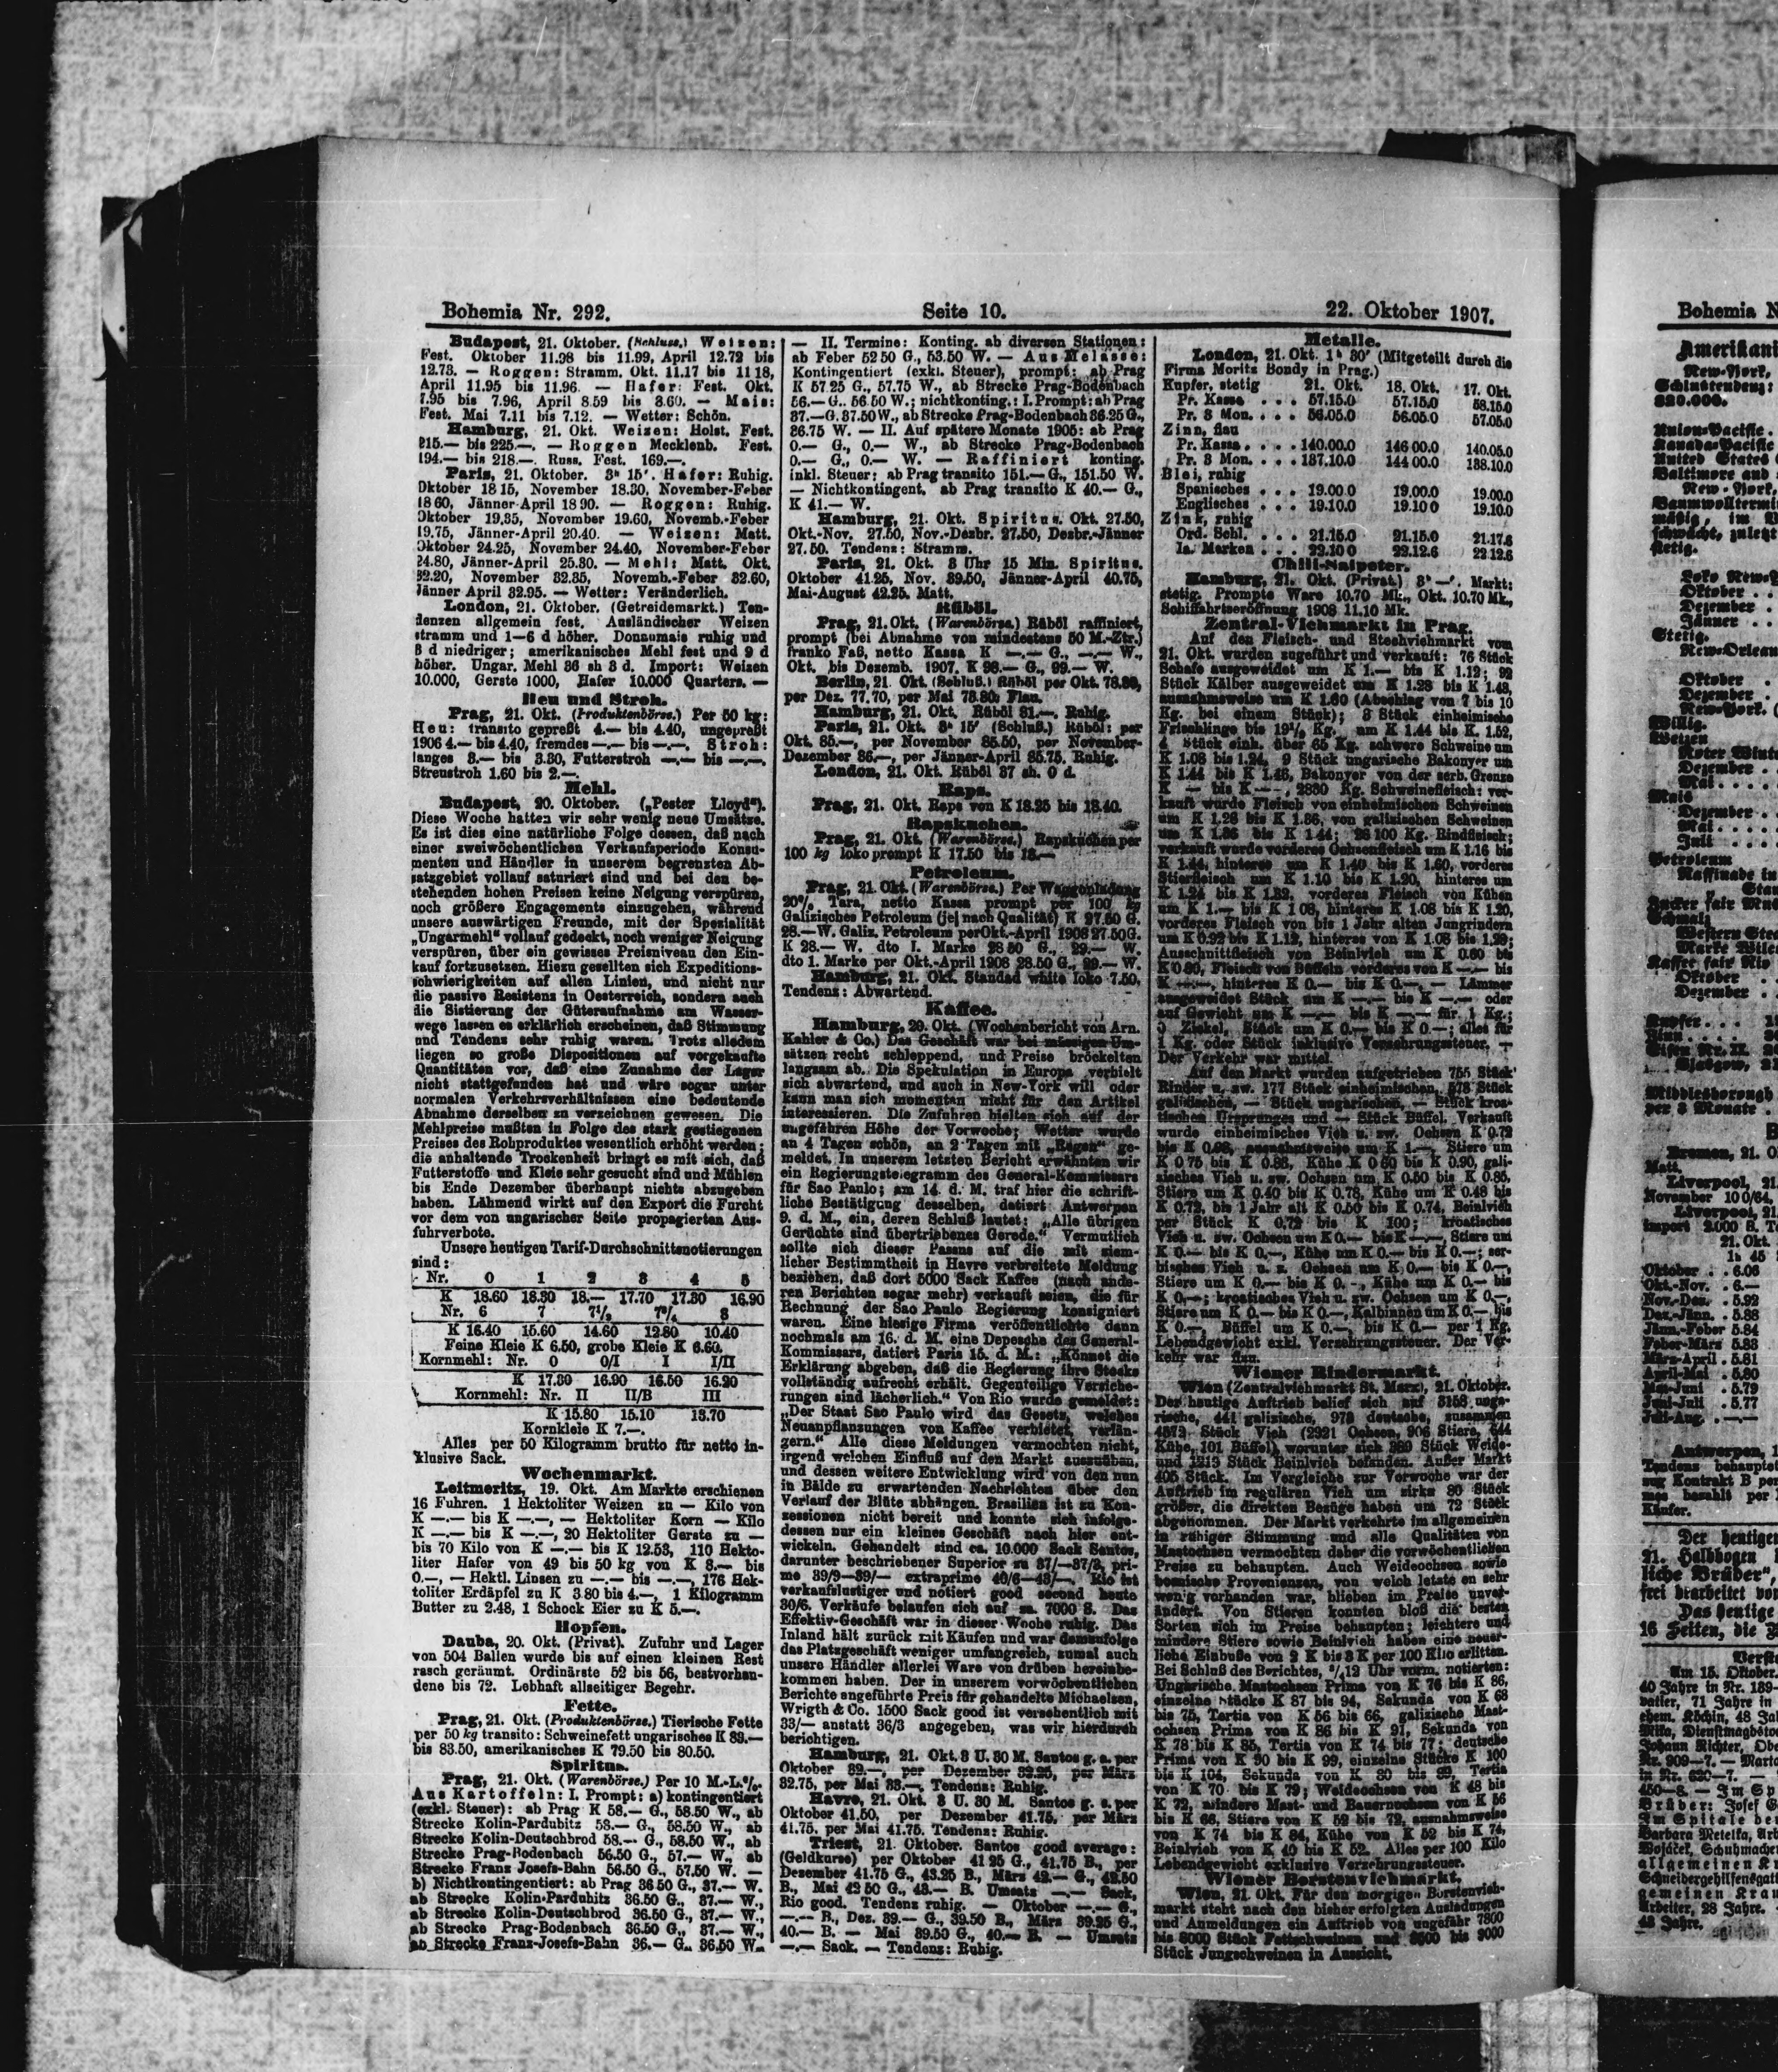 Bohemia Nr. 292.
Seite 10.
22. Oktober 1907.
Budapest, 21. Oktober. (Schluss.) Weizen:
Fest. Oktober 11.98 bis 11.99, April 12.72 bis
12.73. — Roggen: Stramm. Okt. 11.17 bis 11 18,
April 11.95 bis 11.96. — Hafer: Fest. Okt.
7.95 bis 7.96, April 8.59 bis 8.60. — Mais:
Fest. Mai 7.11 bis 7.12. — Wetter: Schön.
Hamburg, 21. Okt. Weizen: Holst. Fest.
215.— bis 225.—. — Roggen Mecklenb. Fest.
194.— bis 218.—. Russ. Fest. 169.—.
Paris, 21. Oktober. 3h 15'. Hafer: Ruhig.
Oktober 18 15, November 18.30, November-Feber
18 60, Jänner-April 18 90. — Roggen: Ruhig.
Oktober 19.35, November 19.60, Novemb.-Feber
19.75, Jänner-April 20.40. — Weizen: Matt.
Oktober 24.25, November 24.40, November-Feber
24.80, Jänner-April 25.30. — Mehl: Matt. Okt.
32.20, November 32.35, Novemb.-Feber 32.60,
Jänner April 32.95. — Wetter: Veränderlich.
London, 21. Oktober. (Getreidemarkt.) Ten-
denzen allgemein fest. Ausländischer Weizen
stramm und 1—6 d höher. Donaumais ruhig und
3 d niedriger; amerikanisches Mehl fest und 9 d
höher. Ungar. Mehl 36 sh 3 d. Import: Weizen
10.000, Gerste 1000, Hafer 10.000 Quarters. —
Heu und Stroh.
Prag, 21. Okt. (Produktenbörse.) Per 50 kg:
Heu: transito gepreßt 4.— bis 4.40, ungepreßt
1906 4.— bis 4.40, fremdes —.— bis —.—. Stroh:
langes 3.— bis 3.30, Futterstroh —.— bis —.—.
Streustroh 1.60 bis 2.—.
Mehl.
Budapest, 20. Oktober. („Pester Lloyd“).
Diese Woche hatten wir sehr wenig neue Umsätze.
Es ist dies eine natürliche Folge dessen, daß nach
einer zweiwöchentlichen Verkaufsperiode Konsu-
menten und Händler in unserem begrenzten Ab-
satzgebiet vollauf saturiert sind und bei den be-
stehenden hohen Preisen keine Neigung verspüren,
noch größere Engagements einzugehen, während
unsere auswärtigen Freunde, mit der Spezialität
„Ungarmehl“ vollauf gedeckt, noch weniger Neigung
verspüren, über ein gewisses Preisniveau den Ein-
kauf fortzusetzen. Hiezu gesellten sich Expeditions-
schwierigkeiten auf allen Linien, und nicht nur
die passive Resistenz in Oesterreich, sondern auch
die Sistierung der Güteraufnahme am Wasser-
wege lassen es erklärlich erscheinen, daß Stimmung
und Tendenz sehr ruhig waren. Trotz alledem
liegen so große Dispositionen auf vorgekaufte
Quantitäten vor, daß eine Zunahme der Lager
nicht stattgefunden hat und wäre sogar unter
normalen Verkehrsverhältnissen eine bedeutende
Abnahme derselben zu verzeichnen gewesen. Die
Mehlpreise mußten in Folge des stark gestiegenen
Preises des Rohproduktes wesentlich erhöht werden;
die anhaltende Trockenheit bringt es mit sich, daß
Futterstoffe und Kleie sehr gesucht sind und Mühlen
bis Ende Dezember überhaupt nichts abzugeben
haben. Lähmend wirkt auf den Export die Furcht
vor dem von ungarischer Seite propagierten Aus-
fuhrverbote.
Unsere heutigen Tarif-Durchschnittsnotierungen
sind:
Nr. 0 1 2 3 4 5
K 18.60 18.30 18.— 17.70 17.30 16.90
Nr. 6 7 7½ 7¾ 8
K 16.40 15.60 14.60 12.80 10.40
Feine Kleie K 6.50, grobe Kleie K 6.60.
Kornmehl: Nr. 0 0/I I I/II
K 17.30 16.90 16.50 16.20
Kornmehl: Nr. II II/B III
K 15.80 15.10 13.70
Kornkleie K 7.—.
Alles per 50 Kilogramm brutto für netto in-
klusive Sack.
Wochenmarkt.
Leitmeritz, 19. Okt. Am Markte erschienen
16 Fuhren. 1 Hektoliter Weizen zu — Kilo von
K —.— bis K —.—, — Hektoliter Korn — Kilo
K —.— bis K —.—, 20 Hektoliter Gerste zu —
bis 70 Kilo von K —.— bis K 12.53, 110 Hekto-
liter Hafer von 49 bis 50 kg von K 8.— bis
0.—, — Hektl. Linsen zu —.— bis —.—, 176 Hek-
toliter Erdäpfel zu K 3.80 bis 4.—, 1 Kilogramm
Butter zu 2.48, 1 Schock Eier zu K 5.—.
Hopfen.
Dauba, 20. Okt. (Privat). Zufuhr und Lager
von 504 Ballen wurde bis auf einen kleinen Rest
rasch geräumt. Ordinärste 52 bis 56, bestvorhan-
dene bis 72. Lebhaft allseitiger Begehr.
Fette.
Prag, 21. Okt. (Produktenbörse.) Tierische Fette
per 50 kg transito: Schweinefett ungarisches K 83.—
bis 83.50, amerikanisches K 79.50 bis 80.50.
Spiritus.
Prag, 21. Okt. (Warenbörse.) Per 10 M.-L.%.
Aus Kartoffeln: I. Prompt: a) kontingentiert
(exkl. Steuer): ab Prag K 58.— G., 58.50 W., ab
Strecke Kolin-Pardubitz 58.— G., 58.50 W., ab
Strecke Kolin-Deutschbrod 58.— G., 58.50 W., ab
Strecke Prag-Bodenbach 56.50 G., 57.— W., ab
Strecke Franz Josefs-Bahn 56.50 G., 57.50 W. —
b) Nichtkontingentiert: ab Prag 36 50 G., 37.— W.
ab Strecke Kolin-Pardubitz 36.50 G., 37.— W.,
ab Strecke Kolin-Deutschbrod 36.50 G., 37.— W.,
ab Strecke Prag-Bodenbach 36.50 G., 37.— W.,
ab Strecke Franz-Josefs-Bahn 36.— G., 36.50 W.
— II. Termine: Konting. ab diversen Stationen:
ab Feber 52 50 G., 53.50 W. — Aus Melasse:
Kontingentiert (exkl. Steuer), prompt: ab Prag
K 57.25 G., 57.75 W., ab Strecke Prag-Bodenbach
56.— G.. 56.50 W.; nichtkonting.: I. Prompt: ab Prag
37.—G. 37.50 W., ab Strecke Prag-Bodenbach 36.25 G.,
36.75 W. — II. Auf spätere Monate 1905: ab Prag
0.— G., 0.— W., ab Strecke Prag-Bodenbach
0.— G., 0.— W. — Raffiniert konting.
inkl. Steuer: ab Prag transito 151.— G., 151.50 W.
— Nichtkontingent. ab Prag transito K 40.— G.,
K 41.— W.
Hamburg, 21. Okt. Spiritus. Okt. 27.50,
Okt.-Nov. 27.50, Nov.-Dezbr. 27.50, Dezbr.-Jänner
27.50. Tendenz: Stramm.
Paris, 21. Okt. 3 Uhr 15 Min. Spiritus.
Oktober 41.25, Nov. 39.50, Jänner-April 40.75,
Mai-August 42.25. Matt.
Rüböl.
Prag, 21. Okt. (Warenbörse.) Rüböl raffiniert,
prompt (bei Abnahme von mindestens 50 M.-Ztr.)
franko Faß, netto Kassa K —.— G., —.— W.,
Okt. bis Dezemb. 1907. K 98.— G., 99.— W.
Berlin, 21. Okt. (Schluß.) Rüböl per Okt. 78.80,
per Dez. 77.70, per Mai 78.80. Flau.
Hamburg, 21. Okt. Rüböl 81.—. Ruhig.
Paris, 21. Okt. 3h 15' (Schluß.) Rüböl: per
Okt. 85.—, per November 85.50, per November-
Dezember 86.—, per Jänner-April 85.75. Ruhig.
London, 21. Okt. Rüböl 37 sh. 0 d.
Raps.
Prag, 21. Okt. Raps von K 18.25 bis 18.40.
Rapskuchen.
Prag, 21. Okt. (Warenbörse.) Rapskuchen per
100 kg loko prompt K 17.50 bis 18.—
Petroleum.
Prag, 21. Okt. (Warenbörse.) Per Waggonladung
20% Tara, netto Kassa prompt per 100 kg
Galizisches Petroleum (je nach Qualität) K 27.50 G.
28.—W. Galiz. Petroleum per Okt.-April 1908 27.50 G.
K 28.— W. dto I. Marke 28 50 G., 29.— W.
dto 1. Marke per Okt.-April 1908 28.50 G., 29.— W.
Hamburg, 21. Okt. Standad white loko 7.50.
Tendenz: Abwartend.
Kaffee.
Hamburg, 20. Okt. (Wochenbericht von Arn.
Kahler & Co.) Das Geschäft war bei mässigen Um-
sätzen recht schleppend, und Preise bröckelten
langsam ab. Die Spekulation in Europa verhielt
sich abwartend, und auch in New-York will oder
kann man sich momentan nicht für den Artikel
interessieren. Die Zufuhren hielten sich auf der
ungefähren Höhe der Vorwoche; Wetter wurde
an 4 Tagen schön, an 2 Tagen mit „Regen“ ge-
meldet. In unserem letzten Bericht erwähnten wir
ein Regierungstelegramm des General-Kommissars
für Sao Paulo; am 14. d. M. traf hier die schrift-
liche Bestätigung desselben, datiert Antwerpen
9. d. M., ein, deren Schluß lautet: „Alle übrigen
Gerüchte sind übertriebenes Gerede.“ Vermutlich
sollte sich dieser Passus auf die mit ziem-
licher Bestimmtheit in Havre verbreitete Meldung
beziehen, daß dort 5000 Sack Kaffee (nach ande-
ren Berichten sogar mehr) verkauft seien, die für
Rechnung der Sao Paulo Regierung konsigniert
waren. Eine hiesige Firma veröffentlichte dann
nochmals am 16. d. M. eine Depesche des General-
Kommissars, datiert Paris 15. d. M.: „Könnet die
Erklärung abgeben, daß die Regierung ihre Stocks
vollständig aufrecht erhält. Gegenteilige Versiche-
rungen sind lächerlich.“ Von Rio wurde gemeldet:
„Der Staat Sao Paulo wird das Gesetz, welches
Neuanpflanzungen von Kaffee verbietet, verlän-
gern.“ Alle diese Meldungen vermochten nicht,
irgend welchen Einfluß auf den Markt auszuüben,
und dessen weitere Entwicklung wird von den nun
in Bälde zu erwartenden Nachrichten über den
Verlauf der Blüte abhängen. Brasilien ist zu Kon-
zessionen nicht bereit und konnte sich infolge-
dessen nur ein kleines Geschäft nach hier ent-
wickeln. Gehandelt sind ca. 10.000 Sack Santos,
darunter beschriebener Superior zu 37/—37/3, pri-
me 39/9—39/— extraprime 40/6—43/—. Rio ist
verkaufslustiger und notiert good second heute
30/6. Verkäufe belaufen sich auf ca. 7000 S. Das
Effektiv-Geschäft war in dieser Woche ruhig. Das
Inland hält zurück mit Käufen und war demzufolge
das Platzgeschäft weniger umfangreich, zumal auch
unsere Händler allerlei Ware von drüben hereinbe-
kommen haben. Der in unserem vorwöchentlichen
Berichte angeführte Preis für gehandelte Michaelsen,
Wrigth & Co. 1500 Sack good ist versehentlich mit
33/— anstatt 36/3 angegeben, was wir hierdurch
berichtigen.
Hamburg, 21. Okt. 3 U. 30 M. Santos g. a. per
Oktober 32.—, per Dezember 32.25, per März
32.75, per Mai 33.—. Tendenz: Ruhig.
Havre, 21. Okt. 3 U. 30 M. Santos g. a. per
Oktober 41.50, per Dezember 41.75, per März
41.75. per Mai 41.75. Tendenz: Ruhig.
Triest, 21. Oktober. Santos good average:
(Geldkurse) per Oktober 41 25 G., 41.75 B., per
Dezember 41.75 G., 43.25 B., März 42.— G., 42.50
B., Mai 42 50 G., 43.— B. Umsatz —.— Sack,
Rio good. Tendenz ruhig. — Oktober —.— G.,
—.— B., Dez. 39.— G., 39.50 B., März 39.25 G.,
40.— B. — Mai 39.50 G., 40.— B. — Umsatz
—.— Sack. — Tendenz: Ruhig.
Metalle.
London, 21. Okt. 1h 30' (Mitgeteilt durch die
Firma Moritz Bondy in Prag.)
Kupfer, stetig 21. Okt. 18. Okt. 17. Okt.
Pr. Kassa . . . 57.15.0 57.15.0 58.15.0
Pr. 3 Mon. . . . 56.05.0 56.05.0 57.05.0
Zinn, flau
Pr. Kassa. . . . 140.00.0 146 00.0 140.05.0
Pr. 3 Mon. . . . 137.10.0 144 00.0 138.10.0
Blei, ruhig
Spanisches . . . 19.00.0 19.00.0 19.00.0
Englisches . . . 19.10.0 19.10 0 19.10.0
Zink, ruhig
Ord. Schl. . . . 21.15.0 21.15.0 21.17.6
Ia. Marken . . . 22.10 0 22.12.6 22 12.6
Chili-Salpeter.
Hamburg, 21. Okt. (Privat.) 3h —'. Markt:
stetig. Prompte Ware 10.70 Mk., Okt. 10.70 Mk.,
Schiffahrtseröffnung 1908 11.10 Mk.
Zentral-Viehmarkt in Prag.
Auf den Fleisch- und Stechviehmarkt vom
21. Okt. wurden zugeführt und verkauft: 76 Stück
Schafe ausgeweidet um K 1.— bis K 1.12; 92
Stück Kälber ausgeweidet um K 1.28 bis K 1.48,
ausnahmsweise um K 1.60 (Abschlag von 7 bis 10
Kg. bei einem Stück); 3 Stück einheimische
Frischlinge bis 19½ Kg. um K 1.44 bis K. 1.52,
4 Stück einh. über 65 Kg. schwere Schweine um
K 1.08 bis 1.24, 9 Stück ungarische Bakonyer um
K 1.44 bis K 1.46, Bakonyer von der serb. Grenze
K — bis K —·—, 2830 Kg. Schweinefleisch: ver-
kauft wurde Fleisch von einheimischen Schweinen
um K 1.28 bis K 1.36, von galizischen Schweinen
um K 1.36 bis K 1.44; 26 100 Kg. Rindfleisch;
verkauft wurde vorderes Ochsenfleisch um K 1.16 bis
K 1.44, hinteres um K 1.40 bis K 1.60, vorderes
Stierfleisch um K 1.10 bis K 1.20, hinteres um
K 1.24 bis K 1.32, vorderes Fleisch von Kühen
um K 1.— bis K 1 08, hinteres K 1.08 bis K 1.20,
vorderes Fleisch von bis 1 Jahr alten Jungrindern
um K 0.92 bis K 1.12, hinteres von K 1.08 bis 1.28;
Ausschnittfleisch von Beinlvieh um K 0.60 bis
K 0.80, Fleisch von Büffeln vorderes von K —.— bis
K —.—, hinteres K 0.— bis K 0.—, — Lämmer
ausgeweidet Stück um K —.— bis K —.— oder
auf Gewicht um K —.— bis K —.— für 1 Kg.;
0 Zickel, Stück um K 0.— bis K 0.—; alles für
1 Kg. oder Stück inklusive Verzehrungssteuer. —
Der Verkehr war mittel.
Auf den Markt wurden aufgetrieben 755 Stück
Rinder u. zw. 177 Stück einheimischen, 578 Stück
galizischen, — Stück ungarischen, — Stück kroa-
tischen Ursprunges und — Stück Büffel. Verkauft
wurde einheimisches Vieh u. zw. Ochsen K 0.72
bis K 0.98, ausnahmsweise um K 1.—, Stiere um
K 0 75 bis K 0.86, Kühe K 0 60 bis K 0.90, gali-
zisches Vieh u. zw. Ochsen um K 0.50 bis K 0.85,
Stiere um K 0.40 bis K 0.78, Kühe um K 0.48 bis
K 0.72, bis 1 Jahr alt K 0.50 bis K 0.74, Beinlvieh
per Stück K 0,72 bis K 100; kroatisches
Vieh u. zw. Ochsen um K 0.— bis K —.—, Stiere um
K 0.— bis K 0.—, Kühe um K 0.— bis K 0.—; ser-
bisches Vieh u. z. Ochsen um K 0.— bis K 0.—,
Stiere um K 0.— bis K 0.-, Kühe um K 0.— bis
K 0.—; kroatisches Vieh u. zw. Ochsen um K 0.—,
Stiere um K 0.— bis K 0.—, Kalbinnen um K 0.— bis
K 0.—, Büffel um K 0.—, bis K 0.— per 1 Kg.
Lebendgewicht exkl. Verzehrungssteuer. Der Ver-
kehr war flau.
Wiener Rindermarkt.
Wien (Zentralviehmarkt St. Marx), 21. Oktober.
Der heutige Auftrieb belief sich auf 3158 unga-
rische, 441 galizische, 973 deutsche, zusammen
4572 Stück Vieh (2921 Ochsen, 906 Stiere, 644
Kühe, 101 Büffel), worunter sich 389 Stück Weide-
und 1213 Stück Beinlvieh befanden. Außer Markt
405 Stück. Im Vergleiche zur Vorwoche war der
Auftrieb im regulären Vieh um zirka 80 Stück
größer, die direkten Bezüge haben um 72 Stück
abgenommen. Der Markt verkehrte im allgemeinen
in ruhiger Stimmung und alle Qualitäten von
Mastochsen vermochten daher die vorwöchentlichen
Preise zu behaupten. Auch Weideochsen sowie
bosnische Provenienzen, von welch letzteren sehr
wenig vorhanden war, blieben im Preise unver-
ändert. Von Stieren konnten bloß die besten
Sorten sich im Preise behaupten; leichtere und
mindere Stiere sowie Beinlvieh haben eine neuer-
liche Einbuße von 2 K bis 3 K per 100 Kilo erlitten.
Bei Schluß des Berichtes, ¾12 Uhr vorm. notierten:
Ungarische Mastochsen Prima von K 76 bis K 86,
einzelne Stücke K 87 bis 94, Sekunda von K 68
bis 75, Tertia von K 56 bis 66, galizische Mast-
ochsen Prima von K 86 bis K 91, Sekunda von
K 78 bis K 85, Tertia von K 74 bis 77; deutsche
Prima von K 90 bis K 99, einzelne Stücke K 100
bis K 104, Sekunda von K 80 bis 89, Tertia
von K 70 bis K 79; Weideochsen von K 48 bis
K 72, mindere Mast- und Bauernochsen von K 56
bis K 66, Stiere von K 52 bis 72, ausnahmsweise
von K 74 bis K 84, Kühe von K 52 bis K 74,
Beinlvieh von K 40 bis K 52. Alles per 100 Kilo
Lebendgewicht exklusive Verzehrungssteuer.
Wiener Borstenviehmarkt.
Wien, 21. Okt. Für den morgigen Borstenvieh-
markt steht nach den bisher erfolgten Ausladungen
und Anmeldungen ein Auftrieb von ungefähr 7800
bis 8000 Stück Fettschweinen und 8500 bis 9000
Stück Jungschweinen in Aussicht.
Bohemia N
Amerikani
New-York,
Schlußtendenz:
820.000.
Union-Pacific .
Kanada-Pacific
United States
Baltimore and
New-York,
Baumwolltermin
Stetig.
Loko New-Y
Oktober . .
Dezember . .
Jänner . .
Stetig.
New-Orlean
Oktober .
Dezember .
New-York. (
Willig.
Weizen
Roter Winte
Dezember . .
Mai . . . .
Mais
Dezember . .
Mai . . . .
Juli . . . .
Petroleum
Raffinade in
Stan
Zucker fair Mus
Schmalz
Western Stea
Marke Wilc
Kaffee fair Rio
Oktober . .
Dezember . .
Kupfer . . .
Zinn . . . .
Glasgow, 21
Middlesborough
per 3 Monate .
Bremen, 21. O
Matt.
Liverpool, 21.
November 10 0/64,
Liverpool, 21.
Import 2.000 S. T
21. Okt.
1h 45
Oktober . . 6.06
Okt.-Nov. . 6.—
Nov.-Dez. . 5.92
Dez.-Jänn. . 5.88
Jänn.-Feber 5.84
Feber-März 5.83
März-April . 5.81
April-Mai . 5.80
Mai-Juni . 5.79
Juni-Juli . 5.77
Juli-Aug. . —.—
Antwerpen, 1
Tendenz behauptet
zug Kontrakt B per
mes bezahlt per
Käufer.
Der heutigen
21. Halbbogen
liche Brüder“,
frei bearbeitet vo
Das heutige
16 Seiten, die
Verst
Am 15. Oktober.
40 Jahre in Nr. 189-
vatier, 71 Jahre in
ehem. Köchin, 48 Ja
Johann Richter, Obe
Nr. 909—7. — Marta
in Nr. 620—7. —
450—8. — Im Sp
Brüder: Josef G
Im Spitale der
Barbara Metelka, Arb
Wojáček, Schuhmache
allgemeinen Kr
Schneidergehilfensgatt
gemeinen Kran
Arbeiter, 28 Jahre. -
48 Jahre.